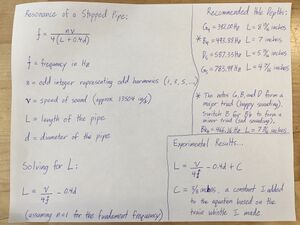 Resonance of a Stopped Pipe:
f = nv / 4(L + 0.4d)
f = frequency in Hz
n = odd integer representing odd harmonics (1, 3, 5, ...)
v = speed of sound (approx 13504 in/s)
L = length of the pipe
d = diameter of the pipe
Solving for L:
L = v / 4f - 0.4d
(assuming n=1 for the fundamental frequency)
Recommended Hole Depths:
G₄ = 392.00 Hz L = 8 inches
* B₄ = 493.88 Hz L = 7 inches
D₅ = 587.33 Hz L = inches
G₅ = 783.99 Hz L = 4 inches
* The notes G, B, and D form a
major triad (happy sounding).
Switch B for B♭ to form a
minor triad (sad sounding).
B♭₄ = 466.16 Hz L = 7 inches
Experimental Results...
L = v / 4f - 0.4d + C
C = inches, a constant I added
to the equation based on the
train whistle I made.